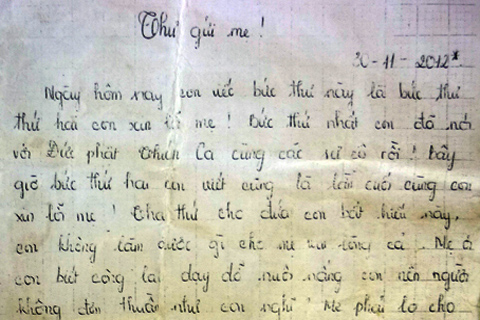 Thư gửi mẹ!
30-11-2012*
Ngày hôm nay con viết bức thư này là bức thư
thứ hai con xin lỗi mẹ! Bức thư nhất con đã nói
với Đức phật Thích Ca cùng các sư cô rồi! Bây
giờ bức thư hai con viết cũng là lần cuối cùng con
xin lỗi mẹ! Tha thứ cho đứa con bất hiếu này,
con không làm được gì cho mẹ vui lòng cả. Mẹ à
con biết công lao dạy dỗ nuôi nấng con nên người
không đơn thuần như con nghĩ! Mẹ phải lo cho